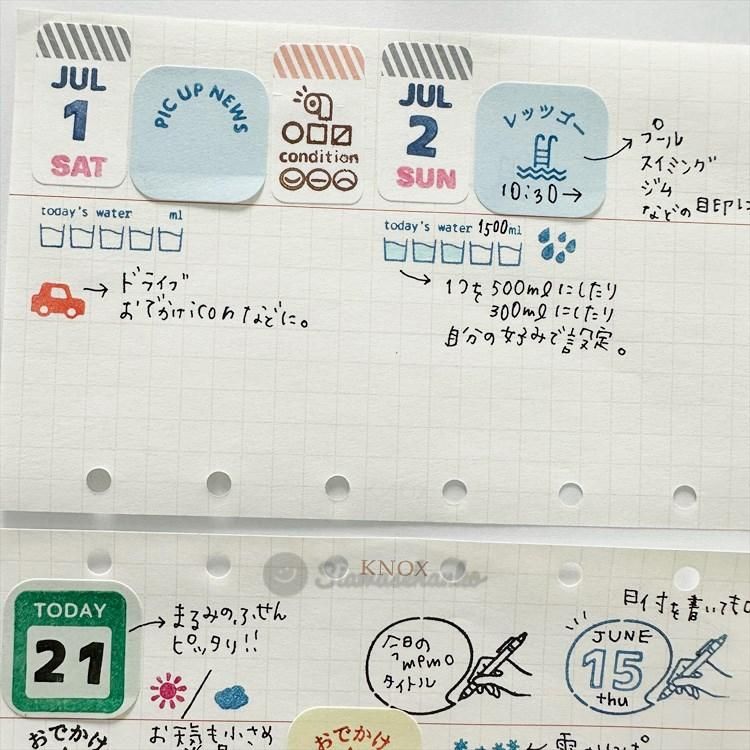 JUL
1
SAT
PIC UP NEWS
condition
JUL
2
SUN
レッツゴー
10:30→
→プール
スイミング
ジム
などの目印に
today's water ml
today's water 1500ml
→ドライブ
おでかけiconなどに。
→1つを500mlにしたり
300mlにしたり
自分の好みで設定。
KNOX
TODAY
21
→まるみのふせん
ピッタリ!!
お天気も小さめ
今日の
memo
タイトル
日付を書いても
JUNE
15
thu
おでかけ
おでかけ